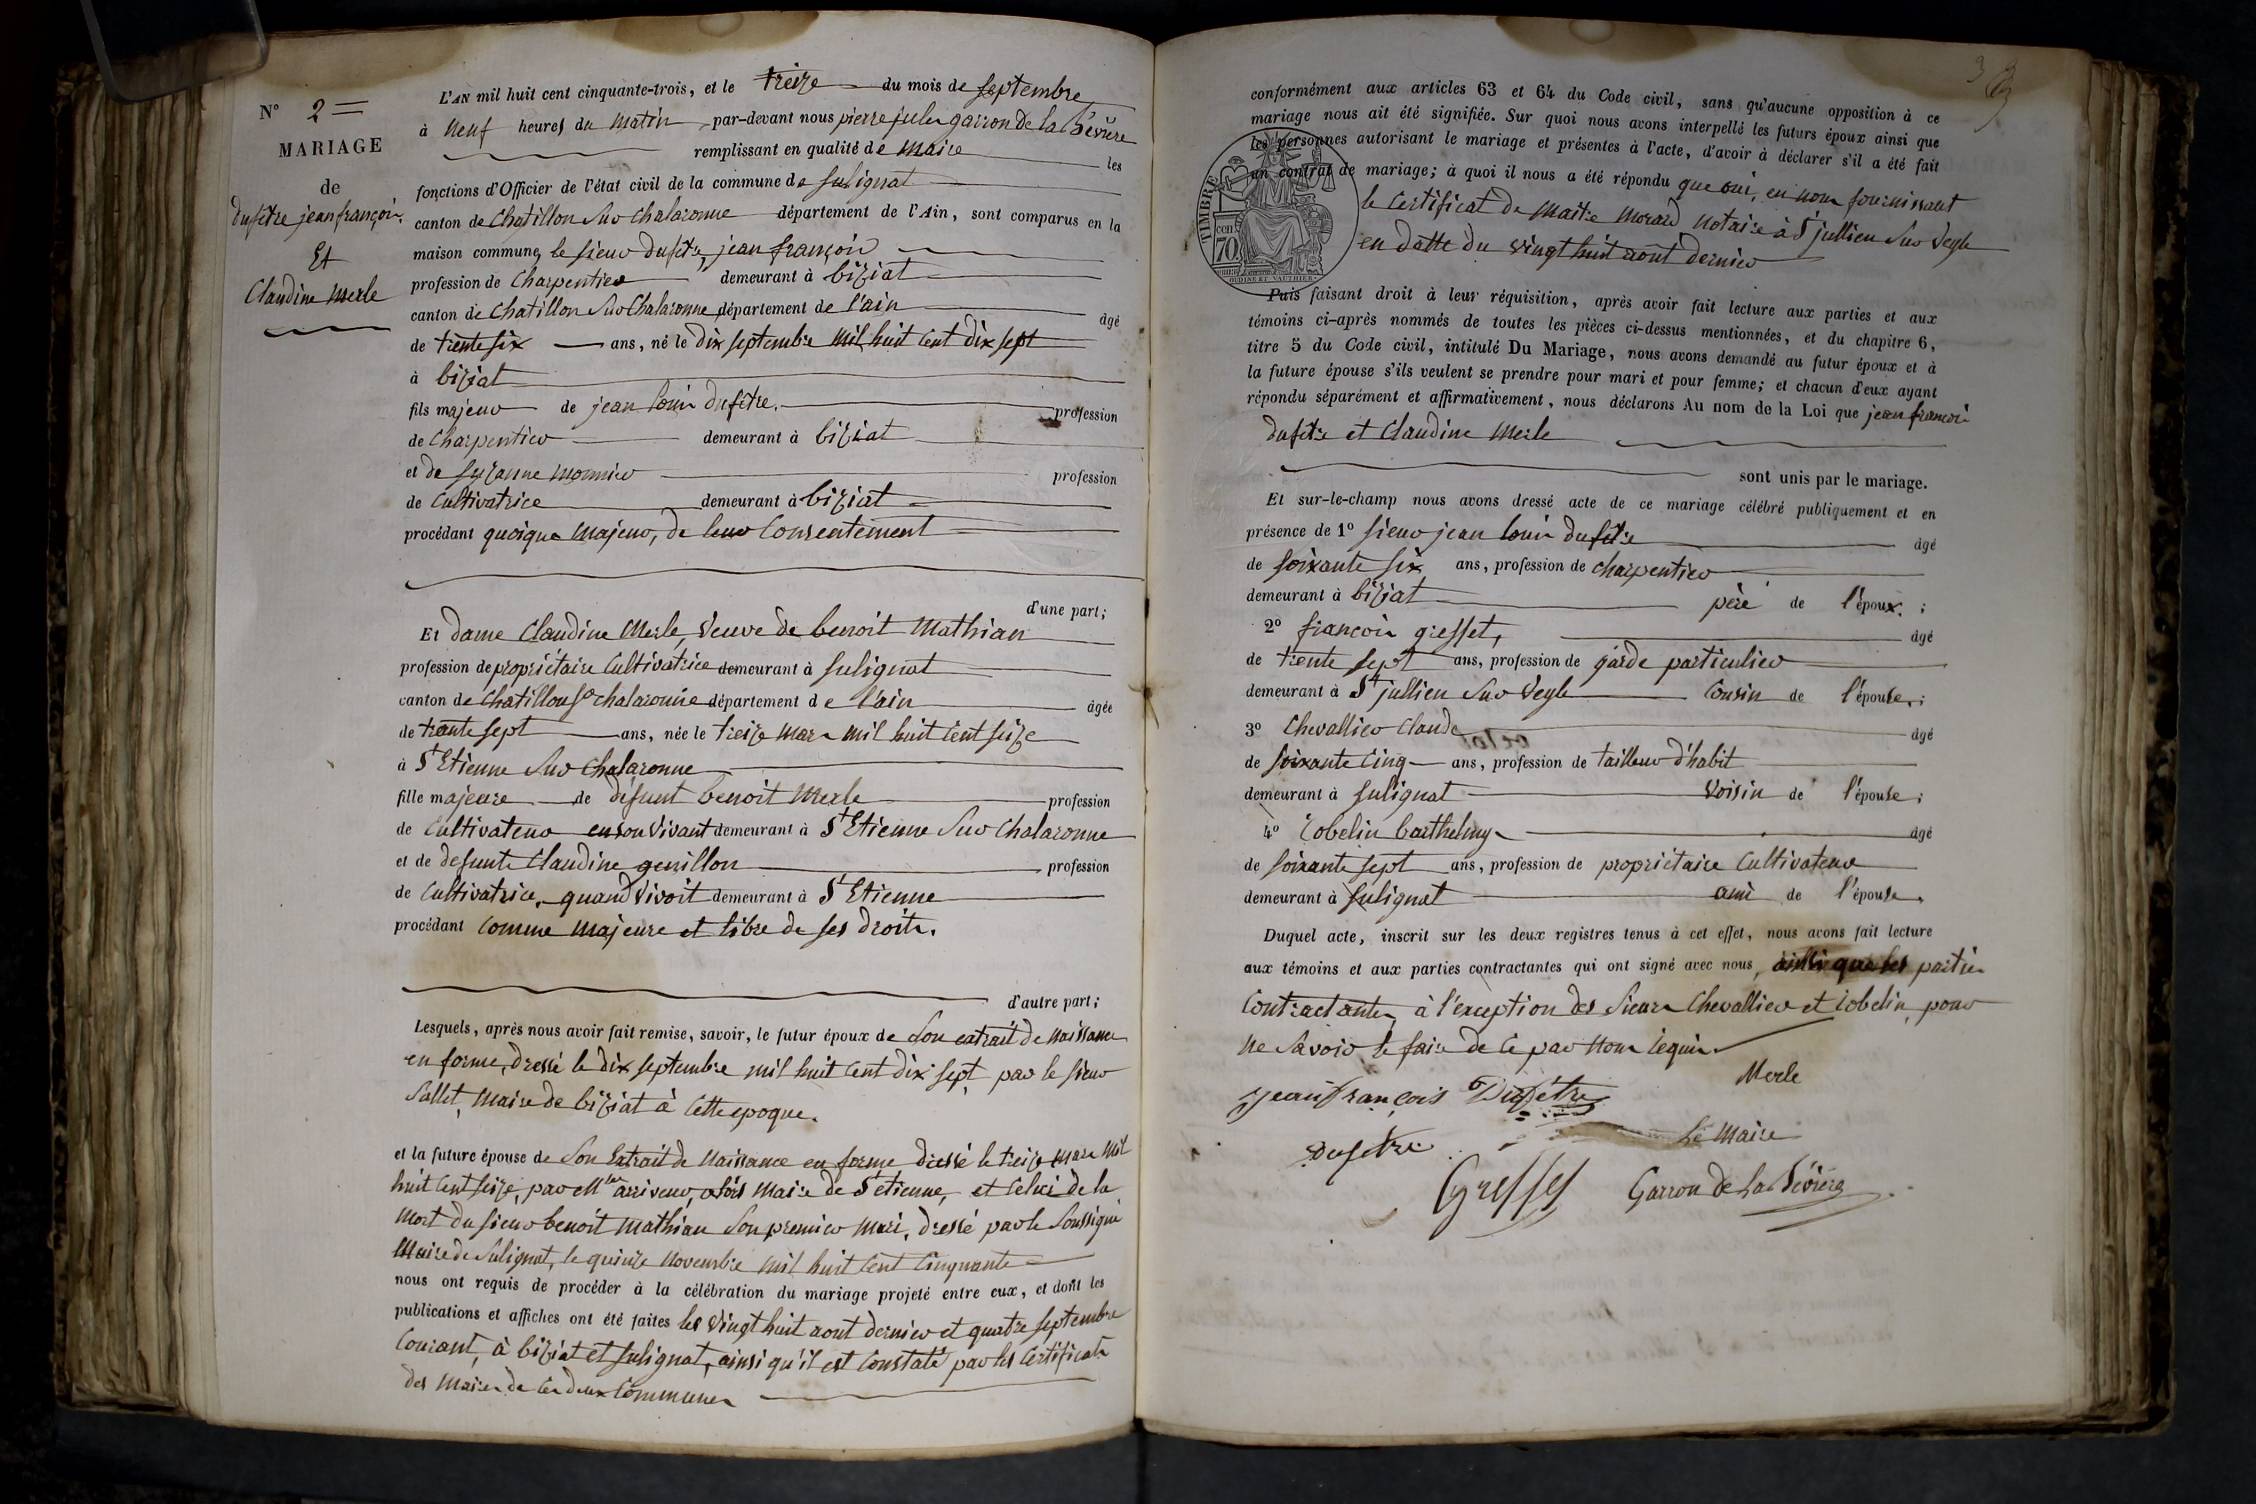 N° 2 =
MARIAGE
de
dufetre jean françois
Et
Claudine merle
L'AN mil huit cent cinquante-trois, et le treize du mois de septembre
à neuf heures du matin par-devant nous pierre jules garron de la bévière
remplissant en qualité de maire les
fonctions d'Officier de l'état civil de la commune de sulignat
canton de Chatillon sur Chalaronne département de l'Ain, sont comparus en la
maison commune, le sieur dufetre, jean françois
profession de Charpentier demeurant à biziat
canton de Chatillon sur Chalaronne département de l'ain âgé
de trente six ans, né le dix septembre mil huit cent dix sept
à biziat
fils majeur de jean louis dufetre. profession
de Charpentier demeurant à biziat
et de suzanne monnier profession
de Cultivatrice demeurant à biziat
procédant quoique majeur, de leur Consentement
d'une part;
Et dame Claudine Merle, Veuve de benoit Mathian
profession de propriétaire Cultivatrice demeurant à sulignat
canton de Chatillon sr chalaronne département de l'ain âgée
de trente sept ans, née le treize mars mil huit cent seize
à St Etienne sur Chalaronne
fille majeure de défunt benoit Merle profession
de Cultivateur en son vivant demeurant à St Etienne sur Chalaronne
et de defunte Claudine genillon profession
de Cultivatrice, quand vivoit demeurant à St Etienne
procédant comme majeure et libre de ses droits.
d'autre part;
Lesquels, après nous avoir fait remise, savoir, le futur époux de son extrait de naissance
en forme, dressé le dix septembre mil huit cent dix sept, par le sieur
sallet, maire de biziat à cette epoque.
et la future épouse de son Extrait de naissance en forme dressé le treize mars mil
huit cent seize, par Mr arriveur, alors maire de St etienne, et celui de la
mort du sieur benoit mathian son premier mari, dressé par le soussigné
Maire de Sulignat, le quinze novembre mil huit cent cinquante
nous ont requis de procéder à la célébration du mariage projeté entre eux, et dont les
publications et affiches ont été faites les vingt huit aout dernier et quatre septembre
courant, à biziat et sulignat, ainsi qu'il est constaté par les certificats
des maires de ces deux communes
conformément aux articles 63 et 64 du Code civil, sans qu'aucune opposition à ce
mariage nous ait été signifiée. Sur quoi nous avons interpellé les futurs époux ainsi que
les personnes autorisant le mariage et présentes à l'acte, d'avoir à déclarer s'il a été fait
un contrat de mariage; à quoi il nous a été répondu que oui, en nous fournissant
le certificat de maitre morard notaire à St jullien sur veyle
en datte du vingt huit aout dernier
TIMBRE
cen
70
OUDINE ET VAUTHIER
Puis faisant droit à leur réquisition, après avoir fait lecture aux parties et aux
témoins ci-après nommés de toutes les pièces ci-dessus mentionnées, et du chapitre 6,
titre 5 du Code civil, intitulé Du Mariage, nous avons demandé au futur époux et à
la future épouse s'ils veulent se prendre pour mari et pour femme; et chacun d'eux ayant
répondu séparément et affirmativement, nous déclarons Au nom de la Loi que jean francois
dufetre et Claudine Merle
sont unis par le mariage.
Et sur-le-champ nous avons dressé acte de ce mariage célébré publiquement et en
présence de 1° sieur jean louis dufetre âgé
de soixante six ans, profession de charpentier
demeurant à biziat père de l'époux;
2° françois gresset, âgé
de trente sept ans, profession de garde particulier
demeurant à St jullien sur veyle Cousin de l'épouse;
3° Chevallier Claude âgé
de soixante cinq ans, profession de tailleur d'habit
demeurant à sulignat voisin de l'épouse;
4° Cobelin barthelmy âgé
de soixante sept ans, profession de propriétaire Cultivateur
demeurant à sulignat ami de l'épouse.
Duquel acte, inscrit sur les deux registres tenus à cet effet, nous avons fait lecture
aux témoins et aux parties contractantes qui ont signé avec nous, ainsi que les parties
Contractantes, à l'exception des sieurs Chevallier et Cobelin, pour
ne savoir le faire de ce par nous requis
Merle
jean françois Dufêtre
Le Maire
Dufetre
Gresset Garron de La Bévière